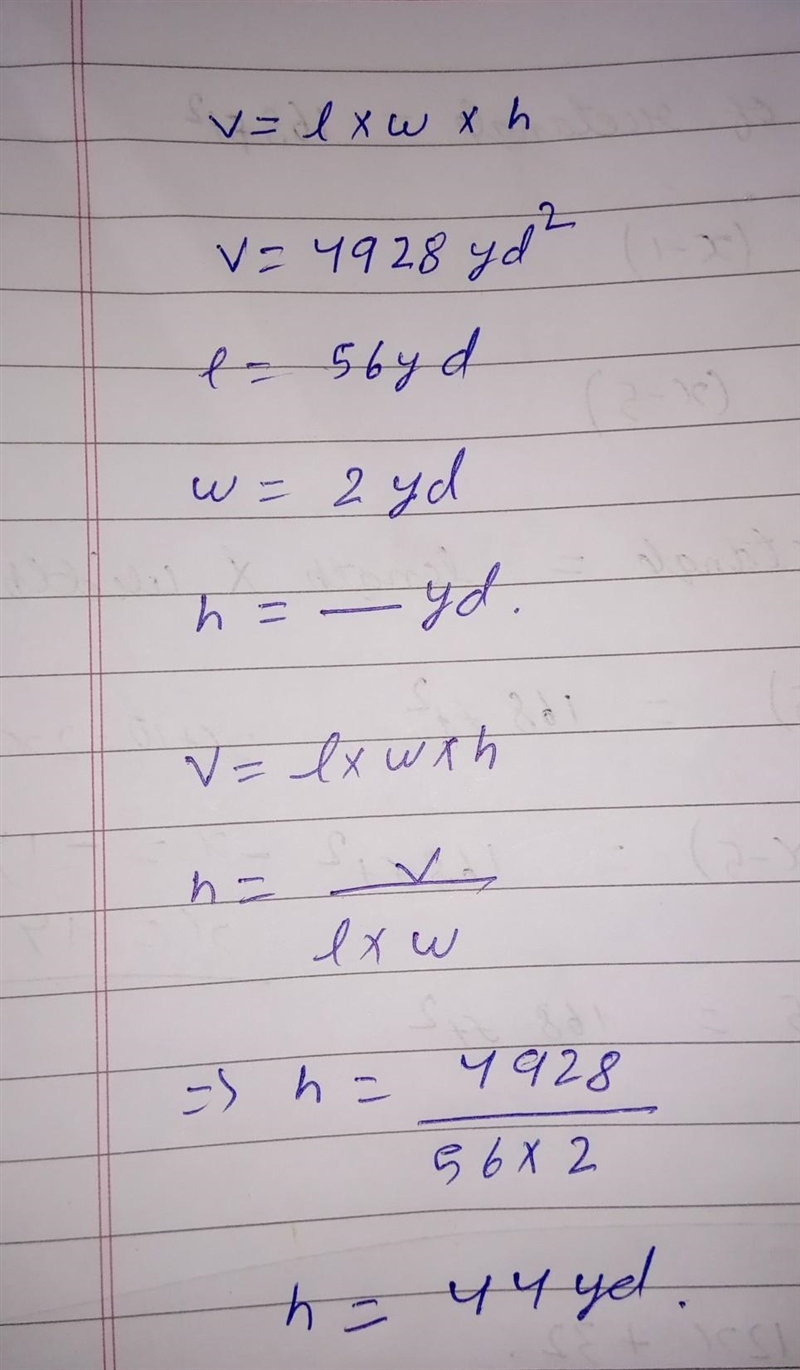 V = l x w x h
V = 4928 yd²
l = 56 yd
w = 2 yd
h = — yd.
V = l x w x h
h = V / l x w
=> h = 4928 / 56 x 2
h = 44 yd.